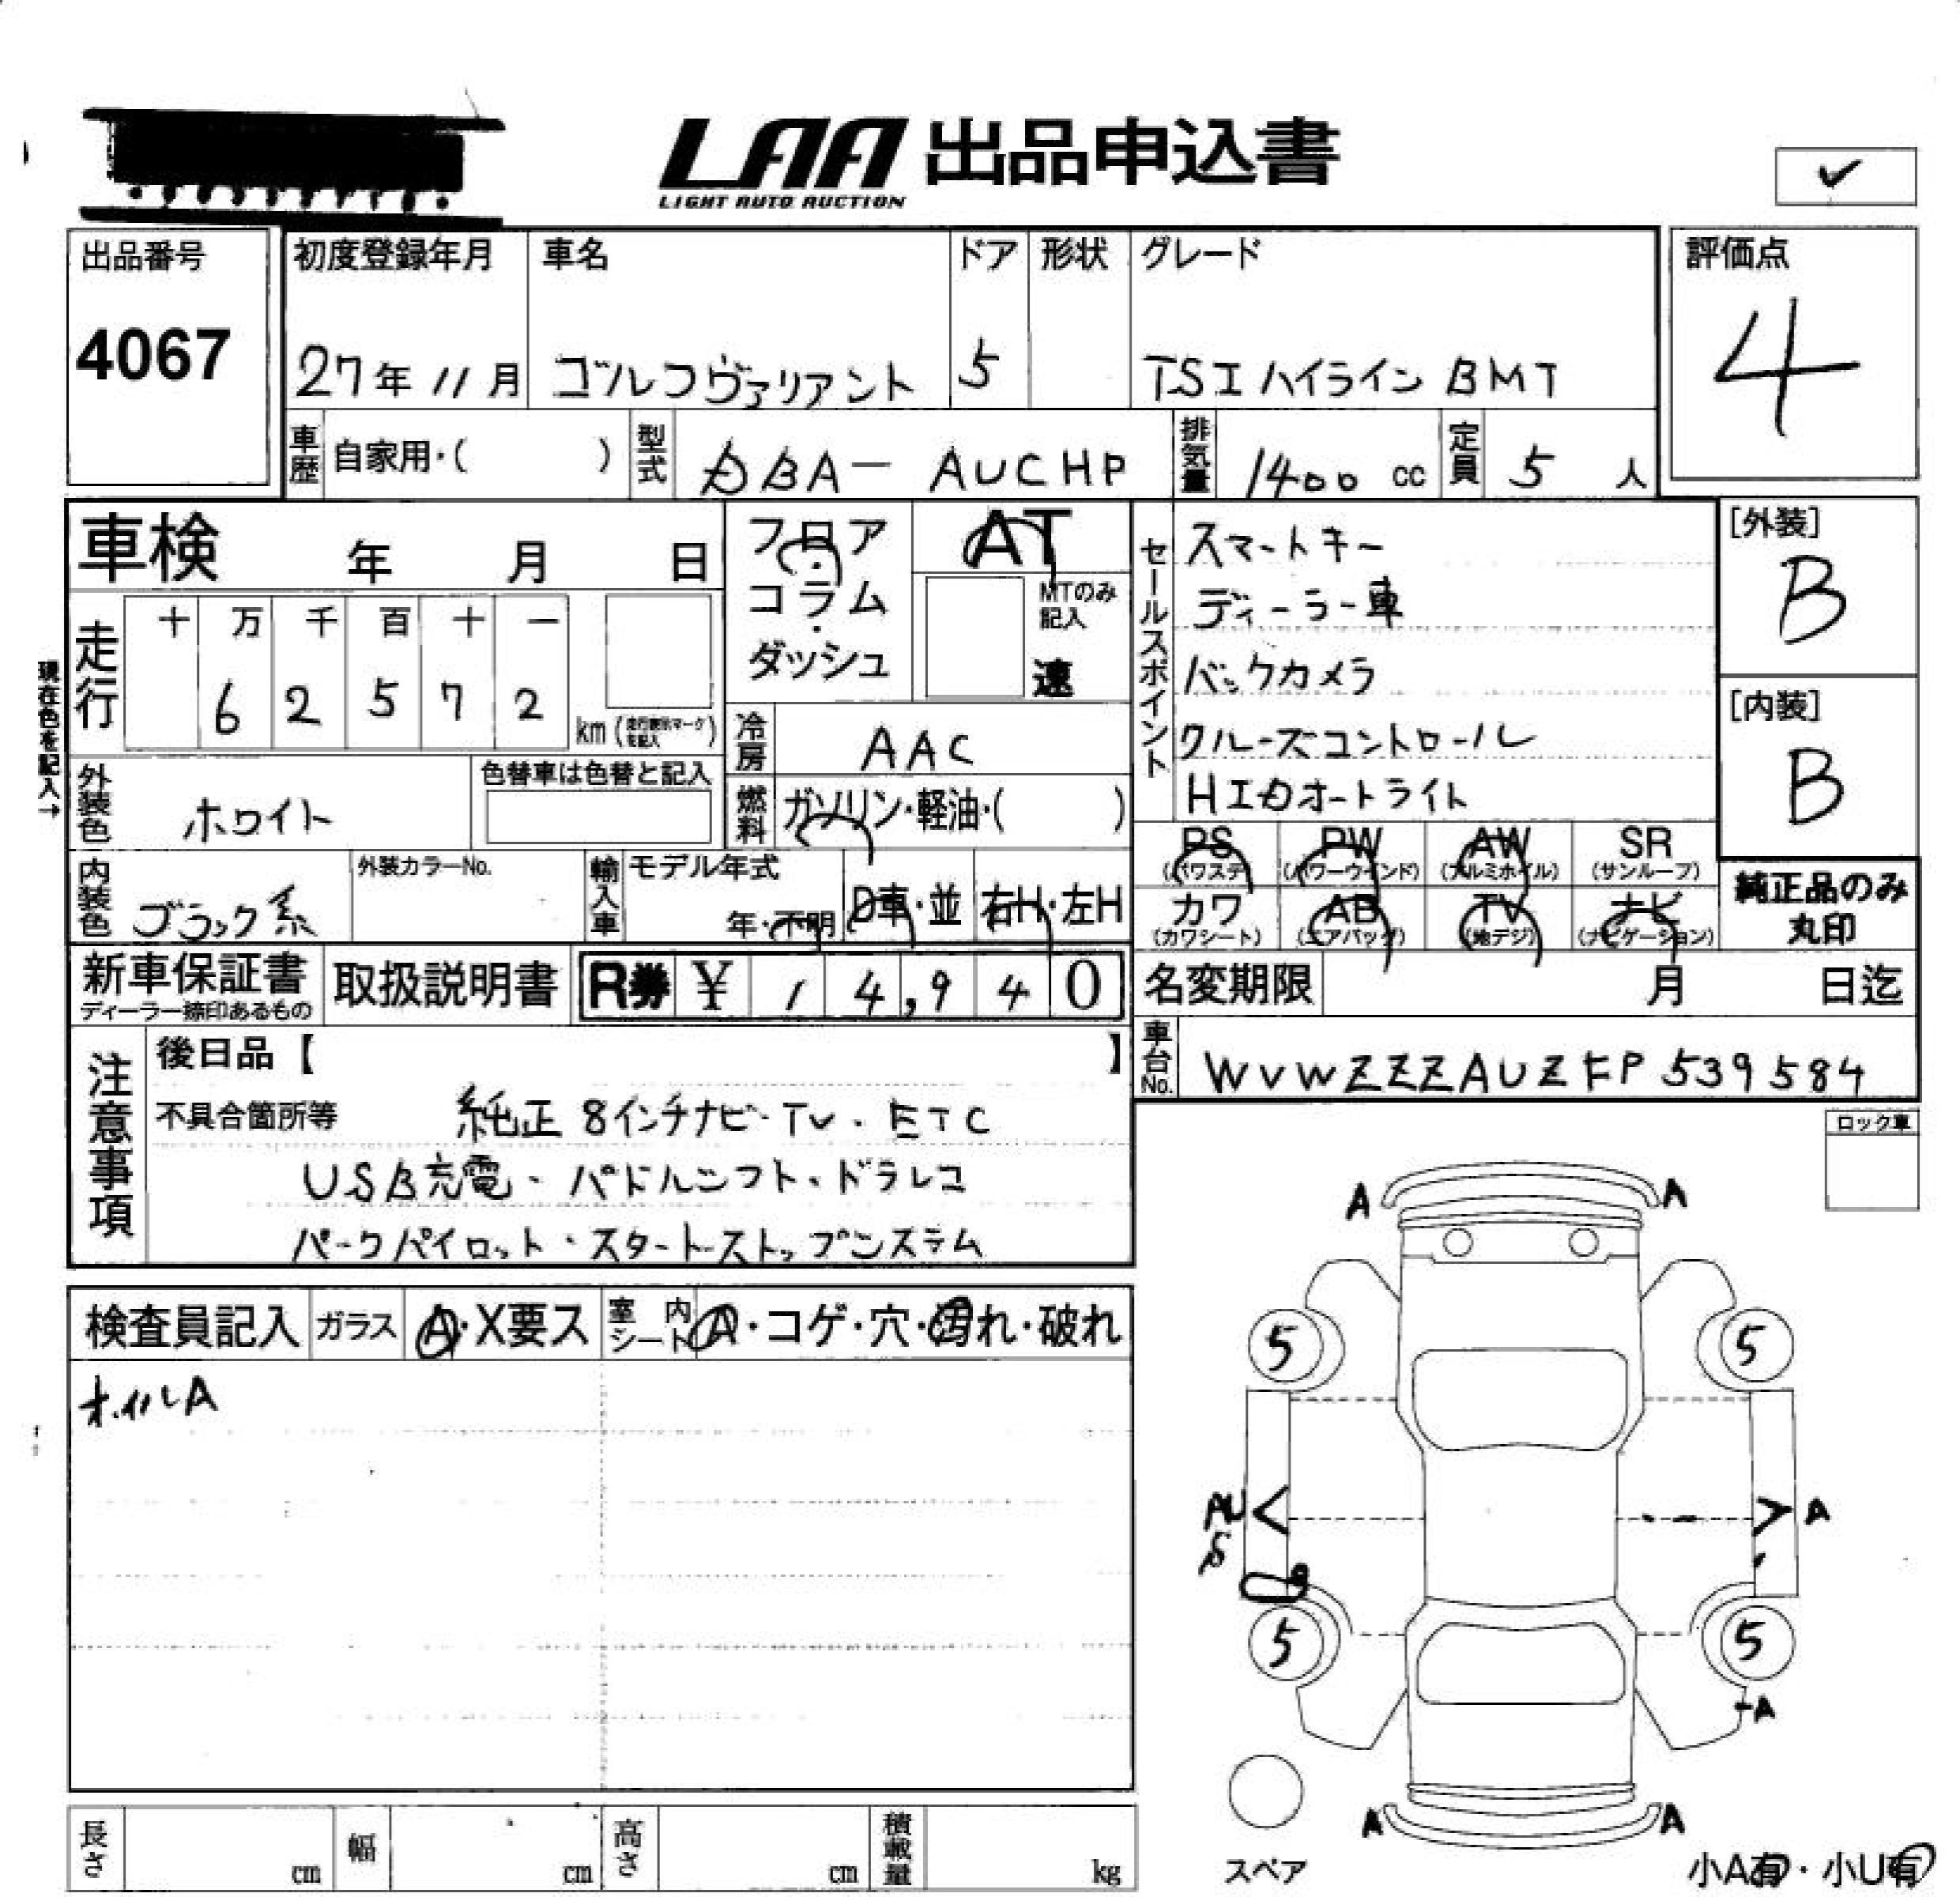 LAA 出品申込書
LIGHT AUTO AUCTION
✓
出品番号
4067
初度登録年月 車名 ドア 形状 グレード
27年 11月 ゴルフヴァリアント 5 TSI ハイライン BMT
評価点
4
車歴 自家用・( ) 型式 DBA- AUCHP 排気量 1400 cc 定員 5 人
車検 年 月 日
フロア・コラム・ダッシュ
AT
MTのみ記入
速
セールスポイント
スマートキー
ディーラー車
バックカメラ
クルーズコントロール
HIDオートライト
[外装]
B
[内装]
B
現在色を記入→
走行 十 万 千 百 十 一
6 2 5 7 2
km (走行表示マークを記入)
冷房 AAC
外装色 ホワイト
色替車は色替と記入
燃料 ガソリン・軽油・( )
PS (パワステ) PW (パワーウインド) AW (アルミホイル) SR (サンルーフ)
カワ (カワシート) AB (エアバッグ) TV (地デジ) ナビ (ナビゲーション)
純正品のみ
丸印
内装色 ブラック系
外装カラーNo.
輸入車 モデル年式 年・不明 D車・並 右H・左H
新車保証書
ディーラー捺印あるもの
取扱説明書
R券 ¥ 14,940
名変期限 月 日迄
車台No. WVWZZZAUZFP539584
注意事項
後日品【 】
不具合箇所等 純正 8インチナビ・TV・ETC
USB充電・パドルシフト・ドラレコ
パークパイロット・スタートストップシステム
ロック車
検査員記入 ガラス A・X要ス 室内シート A・コゲ・穴・汚れ・破れ
ホイルA
A A
5 5
AU A
S
5 5
A
A A
スペア
小A有・小U有
長さ cm 幅 cm 高さ cm 積載量 kg